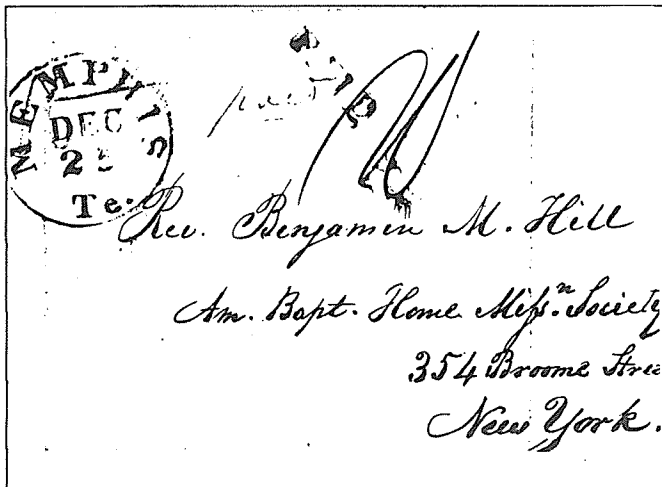 MEMPHIS
DEC
Te.
PAID
paid
Rev. Benjamin M. Hill
Am. Bapt. Home Miſsn. Society
354 Broome Stree
New York.